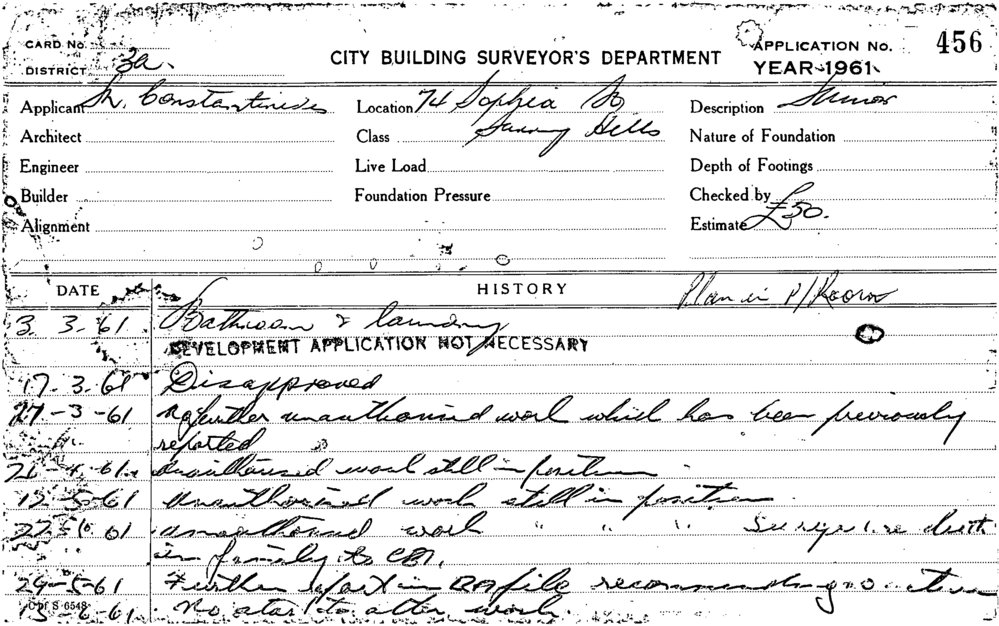 CARD No.
DISTRICT 3a.
CITY BUILDING SURVEYOR'S DEPARTMENT
APPLICATION No. 456
YEAR 1961
Applicant Constantinides
Location 74 Sophia St
Description Minor
Architect
Class Surry Hills
Nature of Foundation
Engineer
Live Load
Depth of Footings
Builder
Foundation Pressure
Checked by
Alignment
Estimate £50.
DATE
HISTORY
Plan in P/Room
3. 3. 61. Bathroom & laundry
DEVELOPMENT APPLICATION NOT NECESSARY
17. 3. 61 Disapproved
27-3-61 No further unauthorised work which has been previously
reported
61. Unauthorised work still in position
12-5-61 Unauthorised work still in position
61 unauthorised work " " "
to CBI.
29-5-61 Further report in file recommending no action
C of S 6548
15-6-61. No start to alter work.